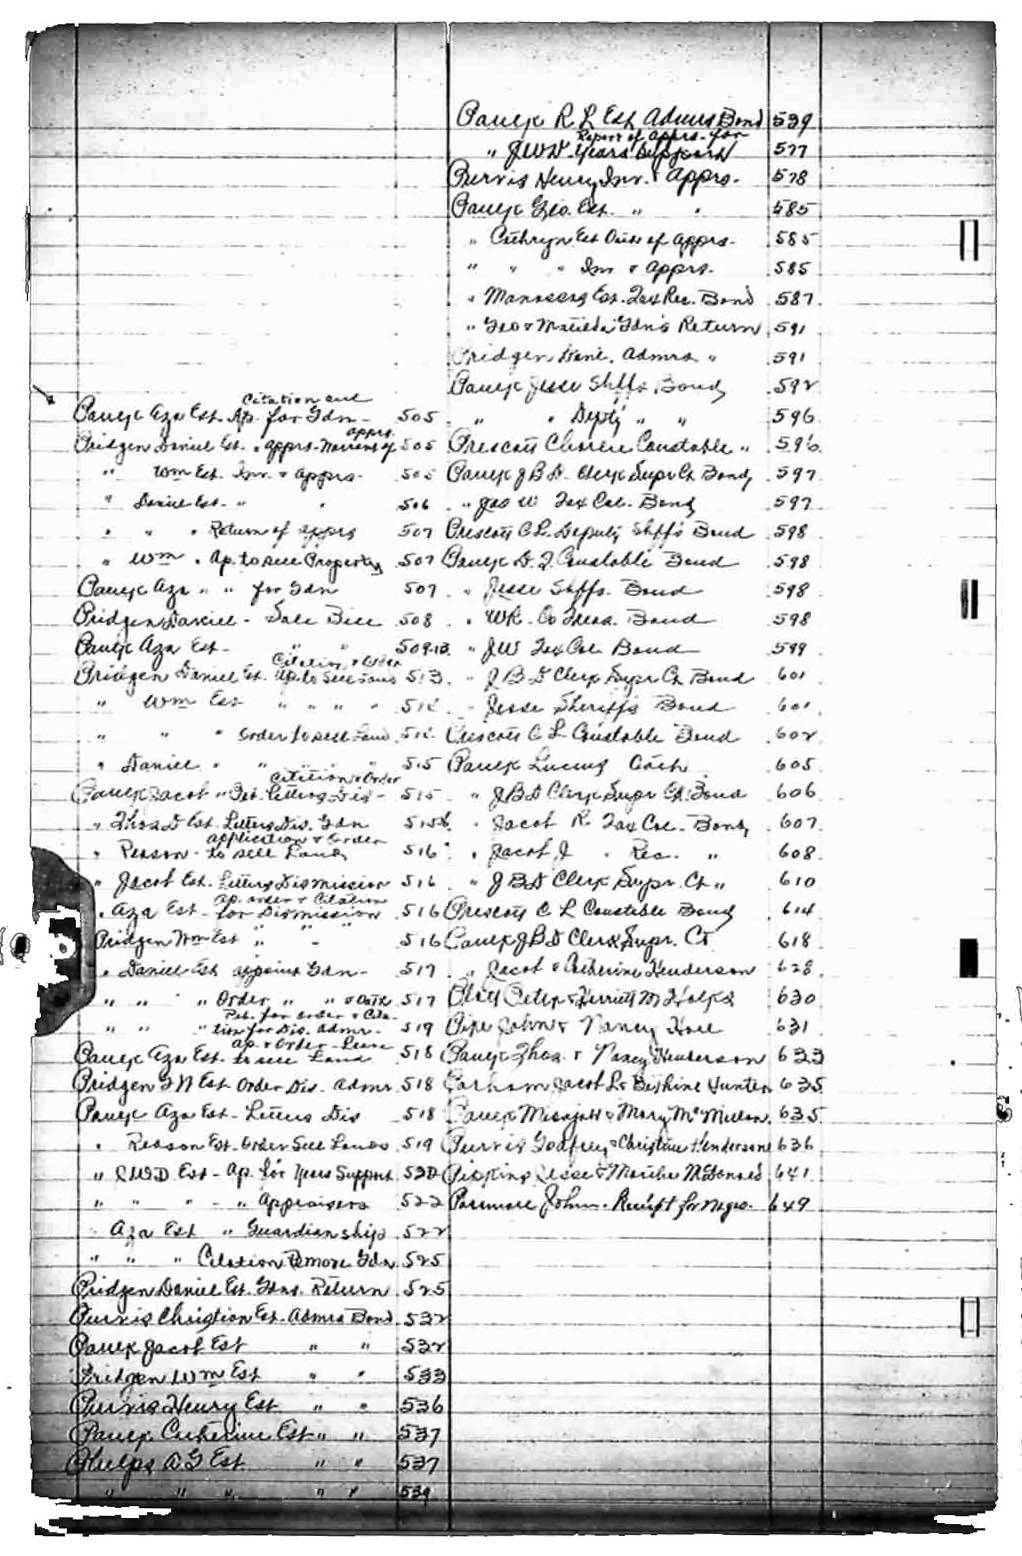 Citation and
Paulk Aza Est. Ap. for Gdn - 505
apprs
Pridgen Daniel Est. " apprs - Warrant of 505
" Wm Est. Inv. & apprs. 505
" Daniel Est. " " 506
" " " Return of apprs 507
" Wm " Ap. to sell Property 507
Paulk Aza " " for Gdn 507
Pridgen Daniel - Sale Bill 508
Paulk Aza Est. " " 509-13
Citation & Order
Pridgen Daniel Est. Ap. to Sell Land 513
" Wm Est " " " "
" " " Order to sell Land
" Daniel " " " " 515
Citation & Order
Paulk Jacob " Pet. Letters Dis - 515
" Thos D Est. Letters Dis. Gdn 515
application & order
" Reason - to sell Land 516
" Jacob Est. Letters Dismission 516
ap. order & Citation
" Aza Est - for Dismission 516
Pridgen Wm Est " " " 516
" Daniel Est appoint Gdn - 517
" " " Order " " & Oath 517
Pet. for order & Cita-
" " " tion for Dis. Admr. - 519
ap. & Order - Leave
Paulk Aza Est - to sell Land 518
Pridgen Est Order Dis. Admr. 518
Paulk Aza Est - Letters Dis 518
" Reason Est. Order Sell Lands 519
" Est - Ap. for Years Support 522
" " " - " Appraisers 522
" Aza Est " Guardianship 522
" " " Citation Remove Gdn 525
Pridgen Daniel Est. Gdns. Return 525
Purvis Christion Est. Admrs Bond 532
Paulk Jacob Est " " 532
Pridgen Wm Est " " 533
Purvis Henry Est. " " 536
Paulk Catherine Est " " 537
Phelps A G Est " " 537
" " " " " 539
Paulk R L Est Admrs Bond 539
Report of apprs. for
" JWD - Years Support 577
Purvis Henry Inv. & Apprs. 578
Paulk Geo. Est. " " 585
" Cathryn Est Oath of Apprs. 585
" " " Inv & Apprs. 585
" Manassas Est. Tax Rec. Bond 587
" Geo & Matilda Gdn's Return 591
Pridgen Danl. Admrs " 591
Paulk Jesse Shffs. Bond 592
" " Depty " " 596
Prescott Charlie Constable " 596
Paulk J B D - Clerk Supr Ct Bond 597
" Jas W Tax Col. Bond 597
Prescott C L. Deputy Shffs Bond 598
Paulk Constable Bond 598
" Jesse Shffs. Bond 598
" WR. Co Treas. Bond 598
" JW Tax Col Bond 599
" J B D Clerk Supr Ct Bond 601
" Jesse Sheriffs Bond 601
Prescott C L Constable Bond 602
Paulk Lucius Oath 605
" J B D Clerk Supr Ct. Bond 606
" Jacob R. Tax Col. Bond 607
" Jacob J " Rec. " 608
" J B D Clerk Supr. Ct " 610
Prescott C L Constable Bond 614
Paulk J B D Clerk Supr. Ct 618
" Jacob & Catherine Henderson 628
Peter & Herriett M 630
Pipe John & Nancy 631
Paulk Thos. & Nancy Henderson 633
Jacob L & Hunter 635
Paulk & Mary McMillan 635
Purvis Godfrey & Christian Henderson 636
Pipkins Jesse & Martha McDonald 641
John - Receipt for Negro. 649